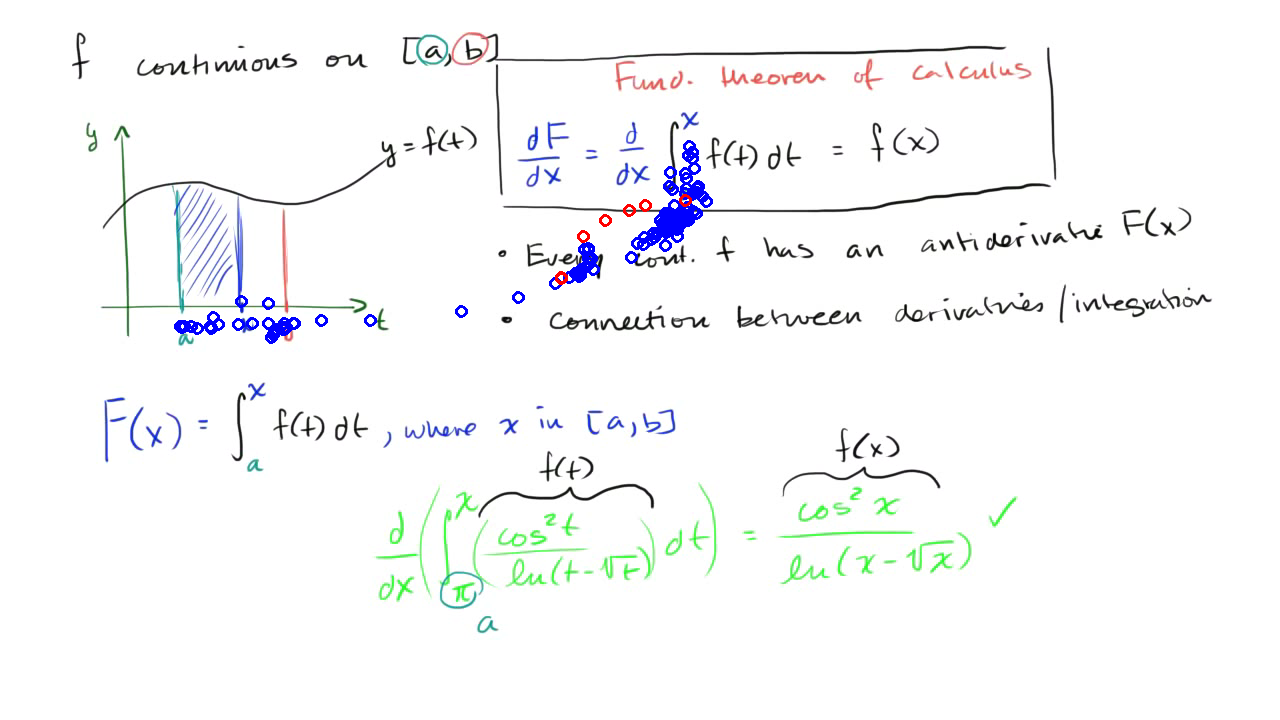 f continuous on [a, b]
Fund. theorem of calculus
dF/dx = d/dx ∫ˣ f(t) dt = f(x)
y
y = f(t)
• Every cont. f has an antiderivative F(x)
t
a
b
• Connection between derivatives / integration
F(x) = ∫ₐˣ f(t) dt, where x in [a, b]
f(t)
f(x)
d/dx (∫_π^x (cos²t / ln(t-√t)) dt) = cos²x / ln(x-√x) ✓
a